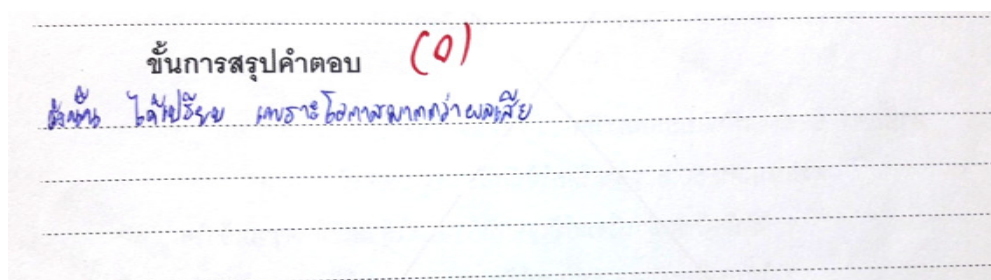 ขั้นการสรุปคำตอบ (0)
ดังนั้น ได้เปรียบ เพราะโอกาสมากกว่าผลเสีย